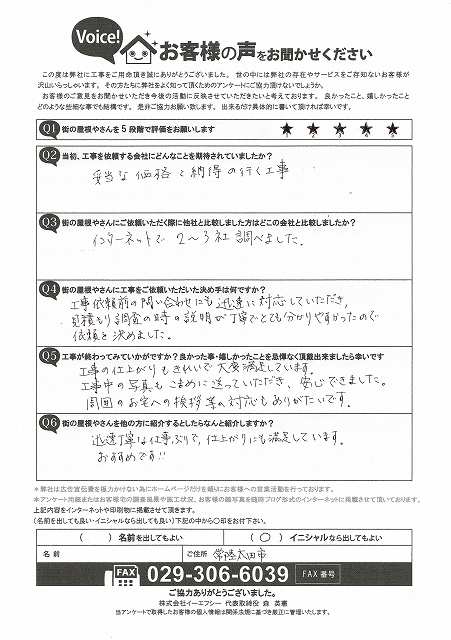 Voice!
お客様の声をお聞かせください
この度は弊社に工事をご用命頂き誠にありがとうございました。世の中には弊社の存在やサービスをご存知ないお客様が
沢山いらっしゃいます。その方たちに弊社をよく知って頂くためのアンケートにご協力頂けないでしょうか。
お客様のご意見をお聞かせいただき今後の活動に反映させていただきたいと考えております。良かったこと、嬉しかったこと
どのような些細な事でも結構です。是非ご協力お願い致します。出来るだけ具体的に書いて頂ければ幸いです。
Q1 街の屋根やさんを5段階で評価をお願いします ★ ★ ★ ★ ★
Q2 当初、工事を依頼する会社にどんなことを期待されていましたか?
妥当な価格と納得の行く工事
Q3 街の屋根やさんにご依頼いただく際に他社と比較しました方はどこの会社と比較しましたか?
インターネットで2〜3社調べました。
Q4 街の屋根やさんに工事をご依頼いただいた決め手は何ですか?
工事依頼前の問い合わせにも迅速に対応していただき、
見積もり調査の時の説明が丁寧でとても分かりやすかったので
依頼を決めました。
Q5 工事が終わってみていかがですか?良かった事・嬉しかったことを忌憚なく頂戴出来ましたら幸いです
工事の仕上がりもきれいで大変満足しています。
工事中の写真もこまめに送っていただき、安心できました。
周囲のお宅への挨拶等の対応もありがたいです。
Q6 街の屋根やさんを他の方に紹介するとしたらなんと紹介しますか?
迅速丁寧な仕事ぶりで、仕上がりにも満足しています。
おすすめです!!
*弊社は広告宣伝費を極力かけない為にホームページだけを頼りにお客様への営業活動を行っております。
*アンケート用紙またはお客様宅の調査風景や施工状況、お客様の顔写真を随時ブログ形式のインターネットに掲載させて頂いております。
上記内容をインターネットや印刷物に掲載させて頂きます。
(名前を出しても良い・イニシャルなら出しても良い)下記の中から〇印をお付け下さい。
( )名前を出してもよい (○)イニシャルなら出してもよい
名前 ご住所 常陸太田市
FAX 029-306-6039 FAX番号
ご協力ありがとうございました。
株式会社イーエフシー 代表取締役 森 英憲
当アンケートで取得したお客様の個人情報は関係法規に基づき厳正に管理いたします。